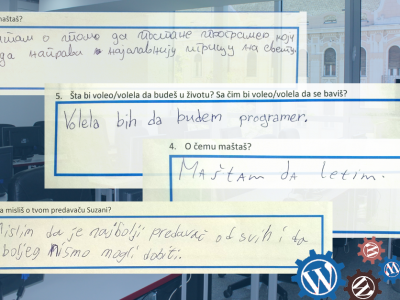 maštaš?
да постане који
да направи игрицу на свету.
5. Šta bi voleo/volela da budeš u životu? Sa čim bi voleo/volela da se baviš?
Volela bih da budem programer.
4. O čemu maštaš?
MAŠTAM DA letim.
a misliš o tvom predavaču Suzani?
islim da je najbolji predavač od svih i da
boljeg nismo mogli dobiti.